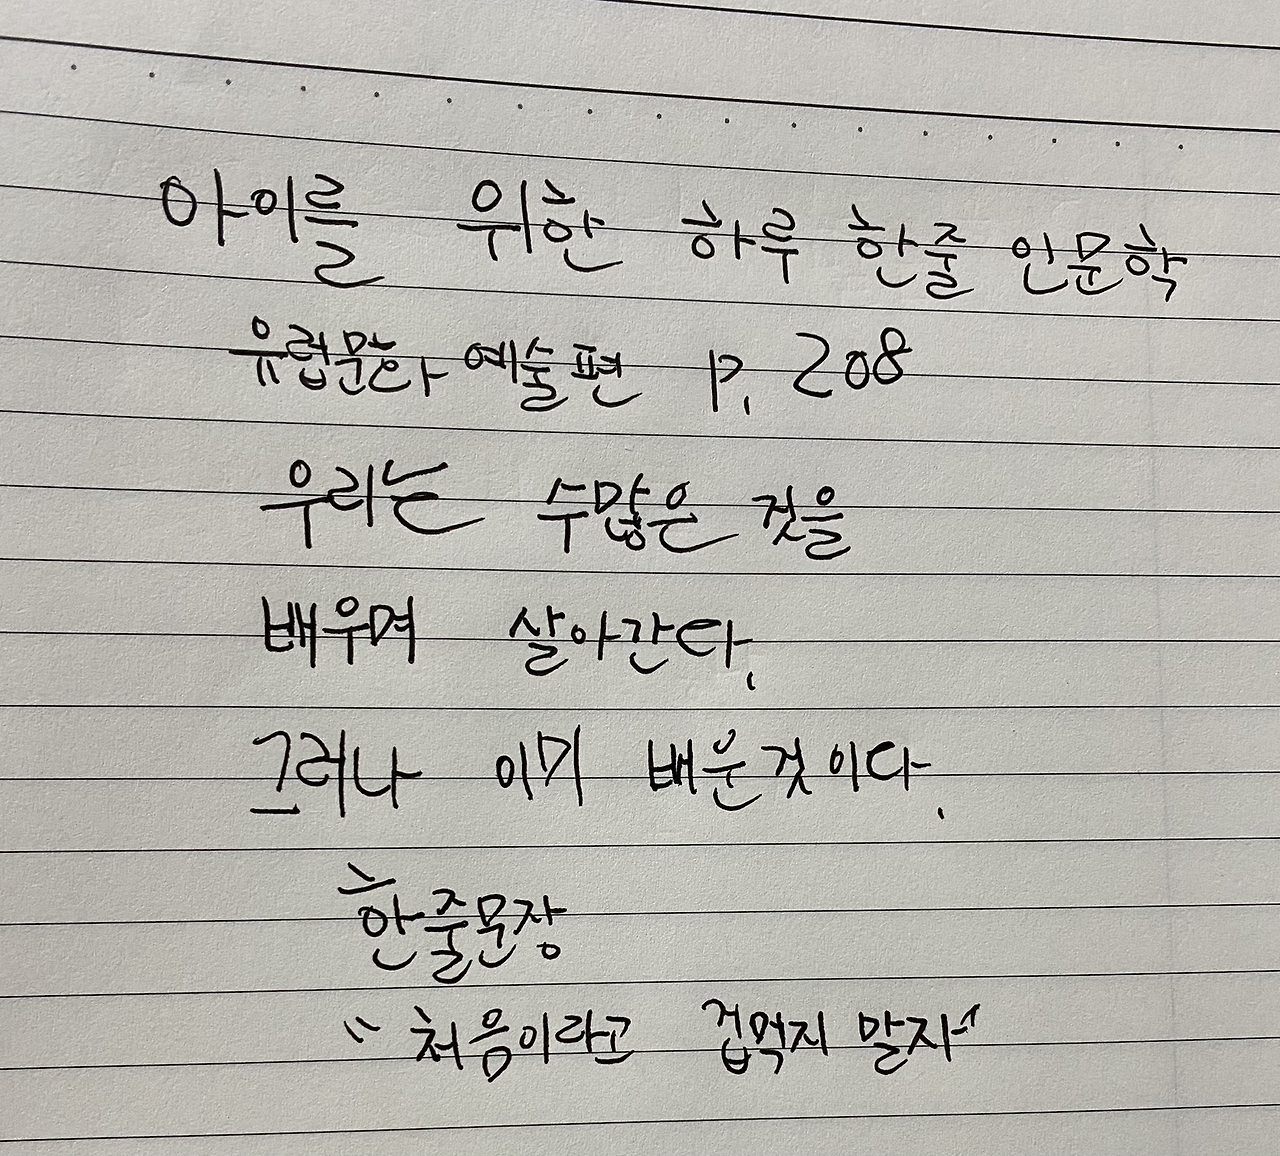 아이를 위한 하루 한줄 인문학
유럽문화 예술편 p. 208
우리는 수많은 것을
배우며 살아간다.
그러나 이미 배운것이다.
한줄문장
"처음이라고 겁먹지 말자"